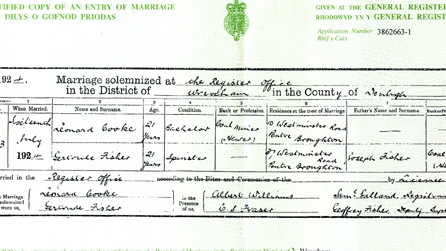 TIFIED COPY OF AN ENTRY OF MARRIAGE
DILYS O GOFNOD PRIODAS
GIVEN AT THE GENERAL REGISTER
RHODDWYD YN Y GENERAL REGIST
Application Number 3862663-1
Rhif y Cais
1924. Marriage solemnized at the Register Office
in the District of Wrexham in the County of Denbigh
When Married. Name and Surname. Age. Condition. Rank or Profession. Residence at the time of Marriage Father's Name and Surname.
Sixteenth July 1924 Leonard Cooke 21 Years Bachelor Coal Miner (Hewer) Westminster Road Broughton
Gertrude Fisher 21 Years Spinster 37 Westminster Road Broughton Joseph Fisher Coal
rried in the Register Office according to the Rites and Ceremonies of the by
Marriage Leonard Cooke in the Presence of us, Albert Williams Registrar
Gertrude Fisher Geoffrey Fisher, Deputy